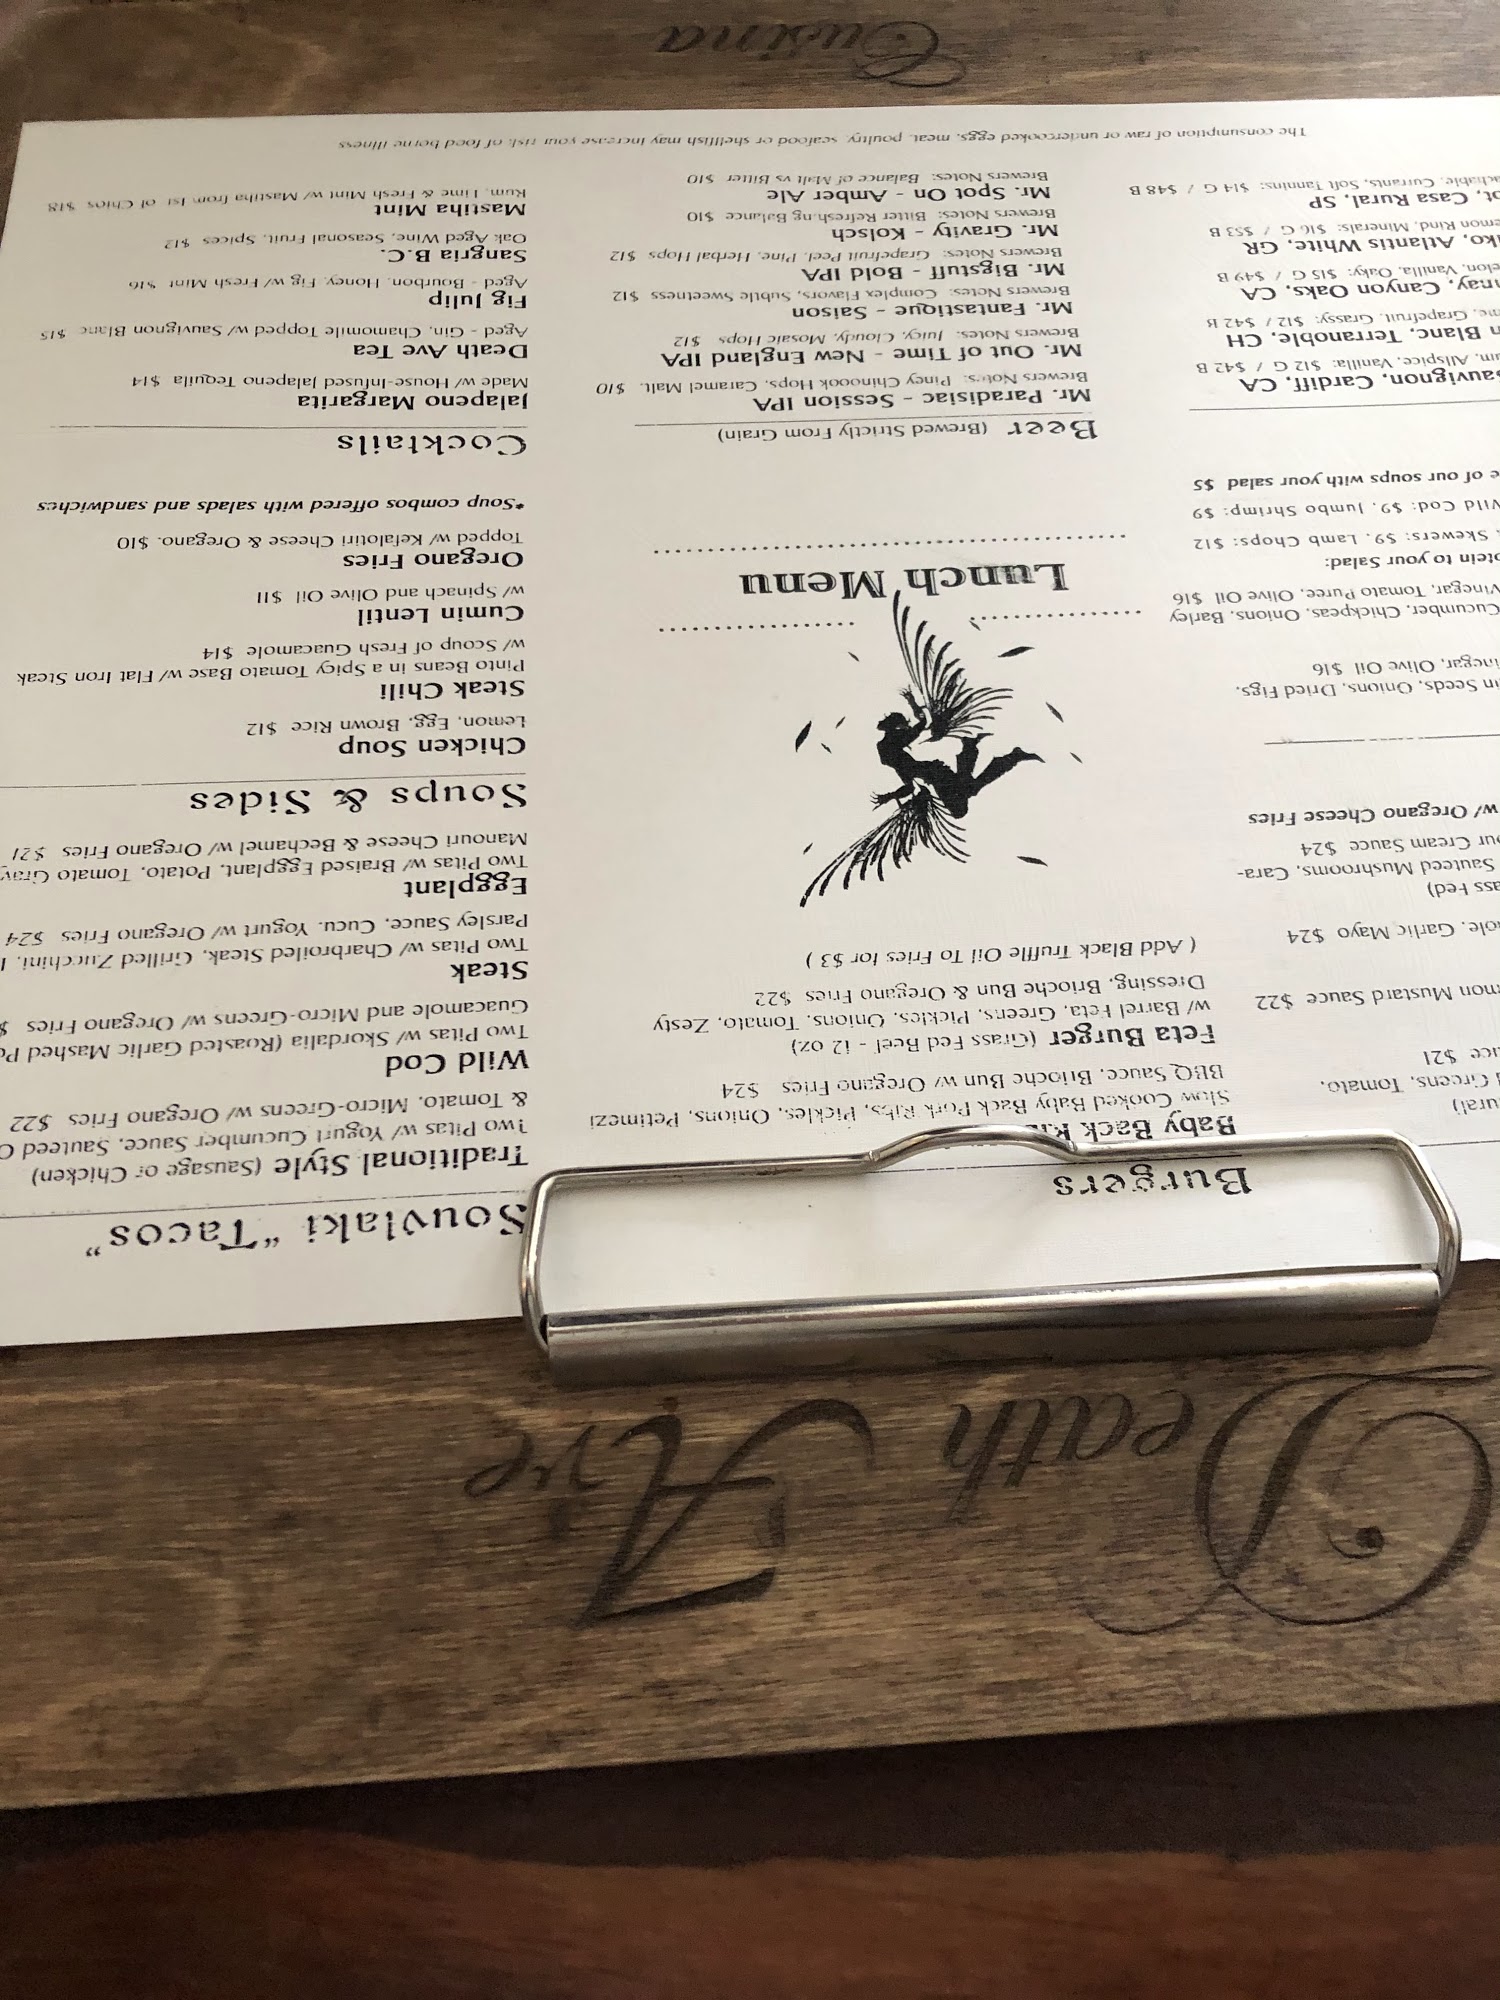 Death Ave
Burgers
Baby Back
Slow Cooked Baby Back Pork Ribs, Pickles, Onions, Petimezi
BBQ Sauce, Brioche Bun w/ Oregano Fries $24
Feta Burger (Grass Fed Beef - 12 oz)
w/ Barrel Feta, Greens, Pickles, Onions, Tomato, Zesty
Dressing, Brioche Bun & Oregano Fries $22
( Add Black Truffle Oil To Fries for $3 )
Lunch Menu
Beer (Brewed Strictly From Grain)
Mr. Paradisiac - Session IPA
Brewers Notes: Piney Chinoook Hops, Caramel Malt. $10
Mr. Out of Time - New England IPA
Brewers Notes: Juicy, Cloudy, Mosaic Hops $12
Mr. Fantastique - Saison
Brewers Notes: Complex Flavors, Subtle Sweetness $12
Mr. Bigstuff - Bold IPA
Brewers Notes: Grapefruit Peel, Pine, Herbal Hops $12
Mr. Gravity - Kolsch
Brewers Notes: Bitter Refreshing Balance $10
Mr. Spot On - Amber Ale
Brewers Notes: Balance of Malt vs Bitter $10
Souvlaki "Tacos"
Traditional Style (Sausage or Chicken)
Two Pitas w/ Yogurt Cucumber Sauce, Sauteed
& Tomato, Micro-Greens w/ Oregano Fries $22
Wild Cod
Two Pitas w/ Skordalia (Roasted Garlic Mashed
Guacamole and Micro-Greens w/ Oregano Fries
Steak
Two Pitas w/ Charbroiled Steak, Grilled Zucchini,
Parsley Sauce, Cucu. Yogurt w/ Oregano Fries $24
Eggplant
Two Pitas w/ Braised Eggplant, Potato, Tomato
Manouri Cheese & Bechamel w/ Oregano Fries $21
Soups & Sides
Chicken Soup
Lemon, Egg, Brown Rice $12
Steak Chili
Pinto Beans in a Spicy Tomato Base w/ Flat Iron Steak
w/ Scoup of Fresh Guacamole $14
Cumin Lentil
w/ Spinach and Olive Oil $11
Oregano Fries
Topped w/ Kefalotiri Cheese & Oregano. $10
*Soup combos offered with salads and sandwiches
Cocktails
Jalapeno Margarita
Made w/ House-Infused Jalapeno Tequila $14
Death Ave Tea
Aged - Gin, Chamomile Topped w/ Sauvignon Blanc $15
Fig Julip
Aged - Bourbon, Honey, Fig w/ Fresh Mint $16
Sangria B.C.
Oak Aged Wine, Seasonal Fruit, Spices $12
Mastiha Mint
Rum, Lime & Fresh Mint w/ Mastiha from Isl of Chios $18
Greens, Tomato,
$21
Mustard Sauce $22
Garlic Mayo $24
Sauteed Mushrooms, Cara-
Cream Sauce $24
w/ Oregano Cheese Fries
Seeds, Onions, Dried Figs,
Olive Oil $16
Cucumber, Chickpeas, Onions, Barley
Vinegar, Tomato Puree, Olive Oil $16
to your Salad:
Skewers: $9, Lamb Chops: $12
Wild Cod: $9, Jumbo Shrimp: $9
of our soups with your salad $5
Cardiff, CA
Allspice, Vanilla: $12 G / $42 B
Blanc, Terranoble, CH
Grapefruit, Grassy: $12 / $42 B
Canyon Oaks, CA
Vanilla, Oaky: $15 G / $49 B
Atlantis White, GR
Rind, Minerals: $16 G / $53 B
Casa Rural, SP
Currants, Soft Tannins: $14 G / $48 B
The consumption of raw or undercooked eggs, meat, poultry, seafood or shellfish may increase your risk of food borne illness
Cusina